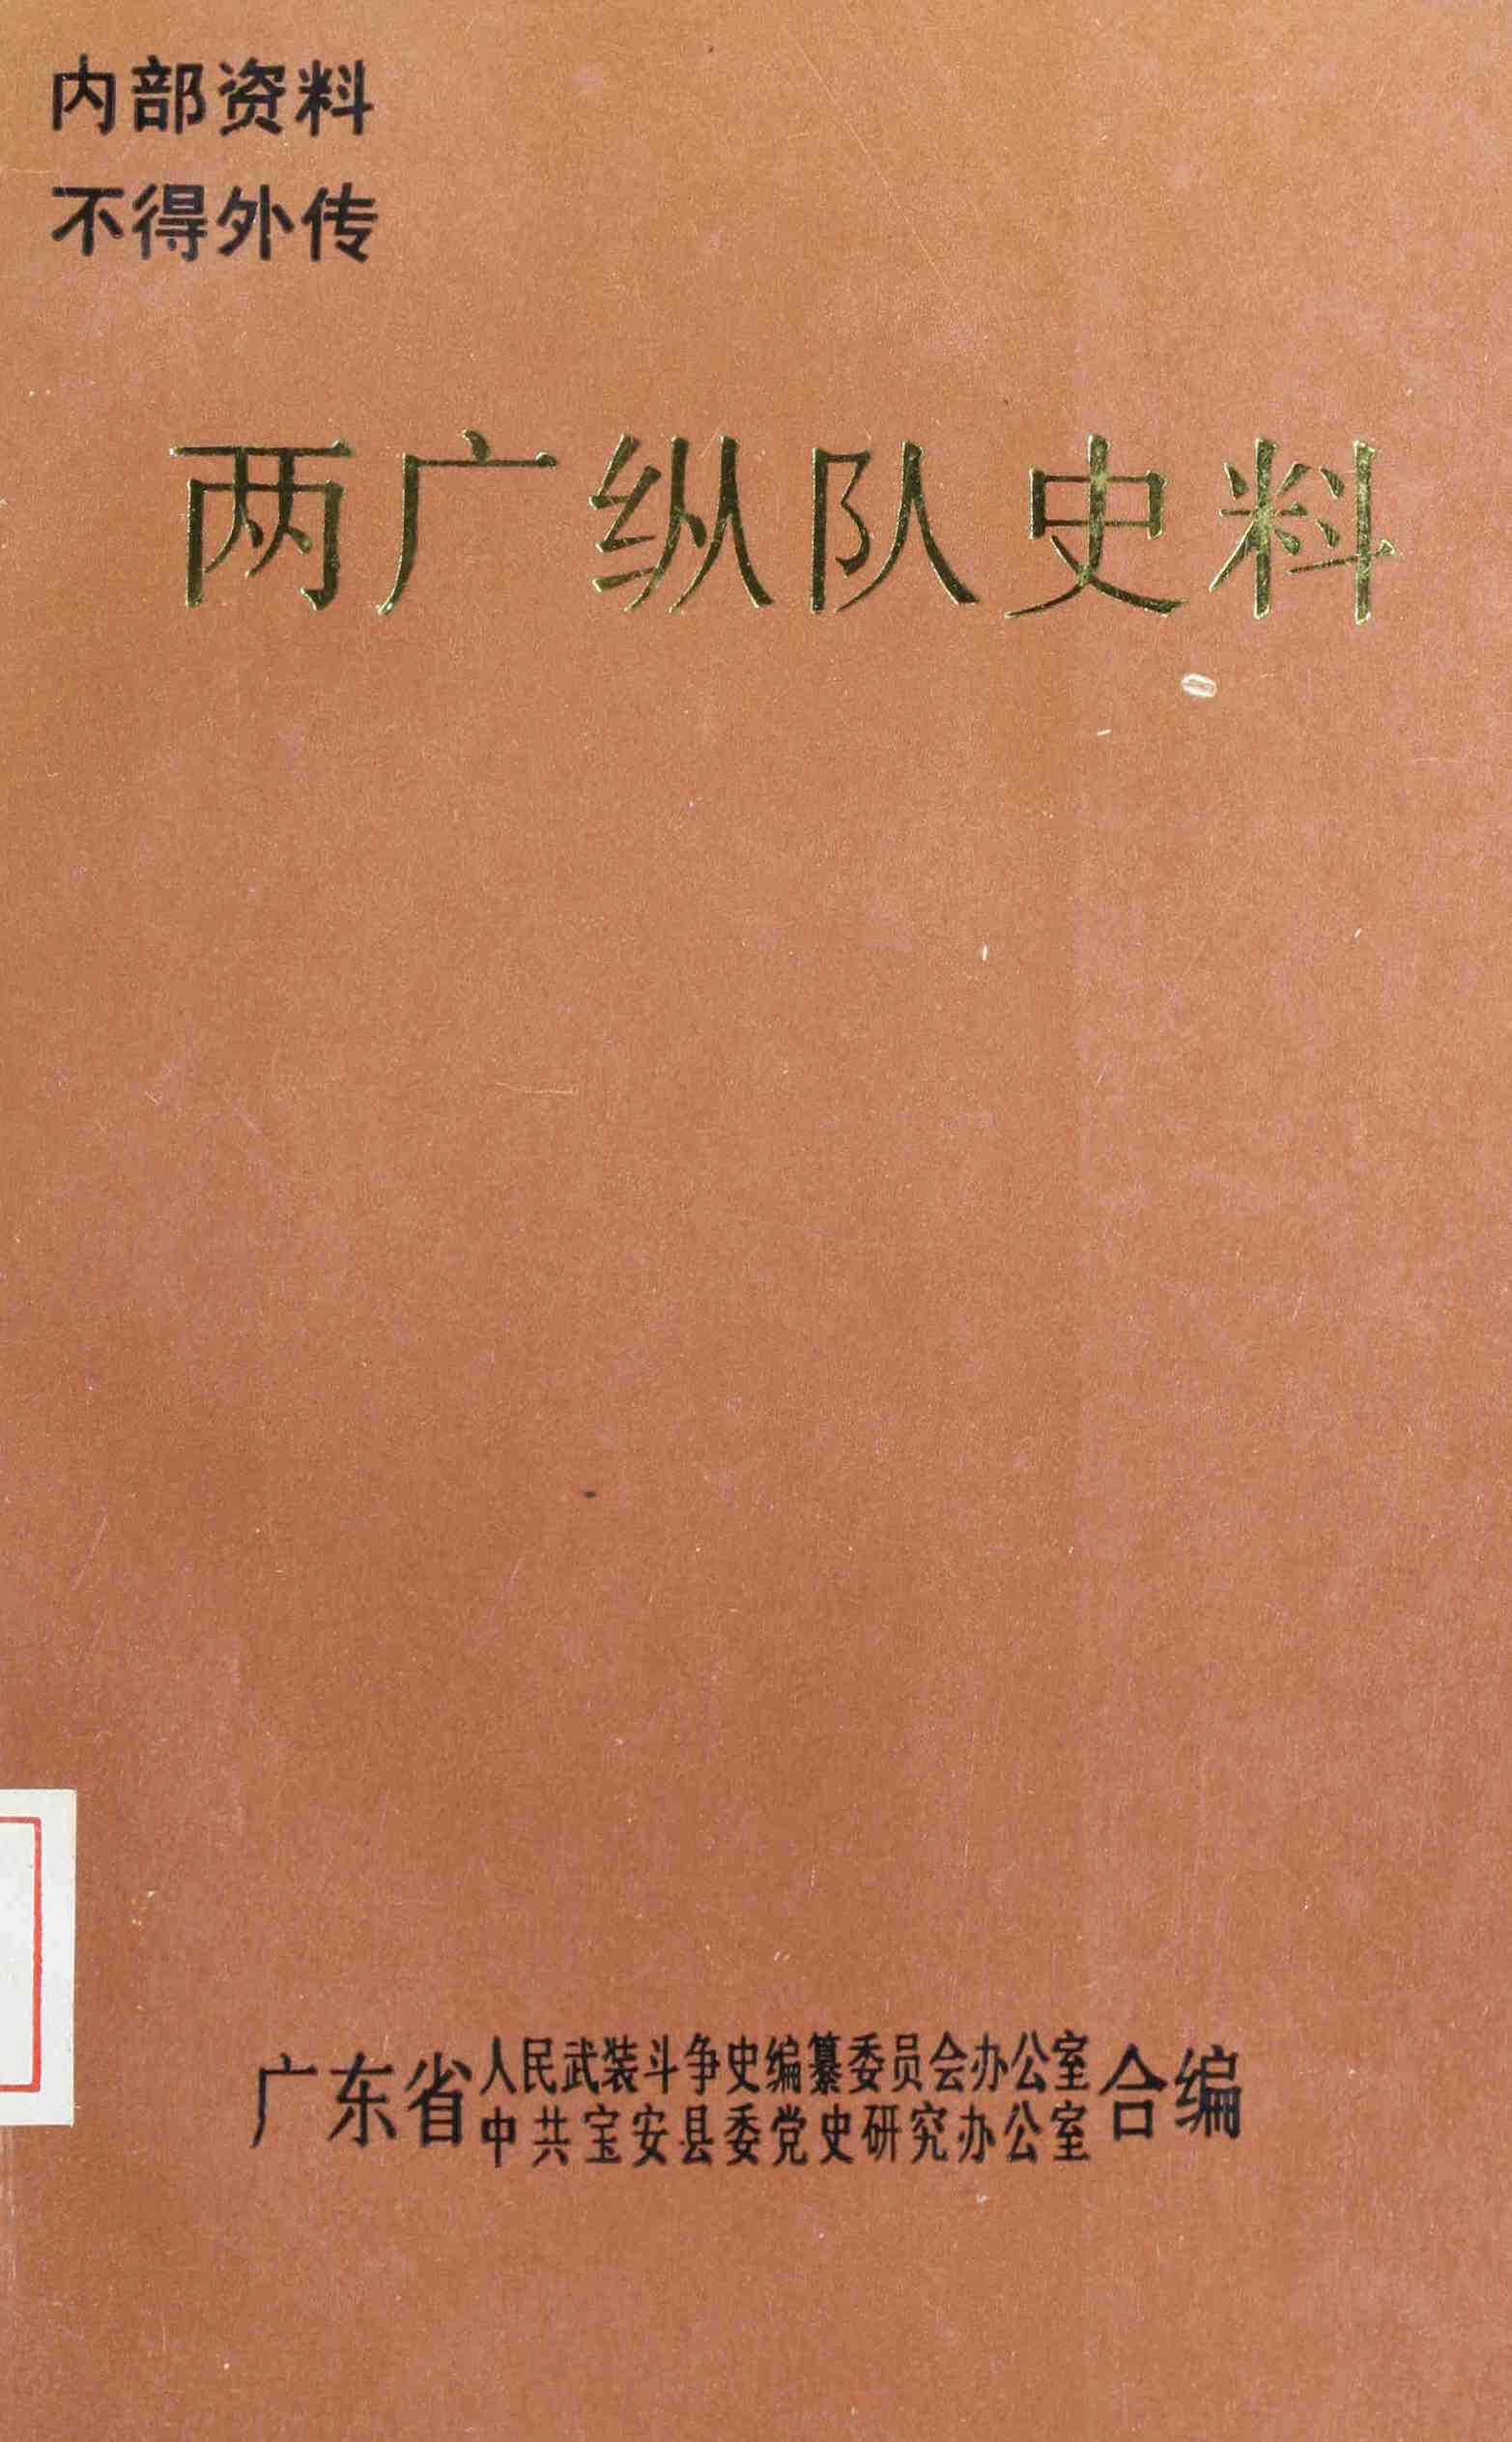 内部资料
不得外传
两广纵队史料
广东省人民武装斗争史编纂委员会办公室
中共宝安县委党史研究办公室合编